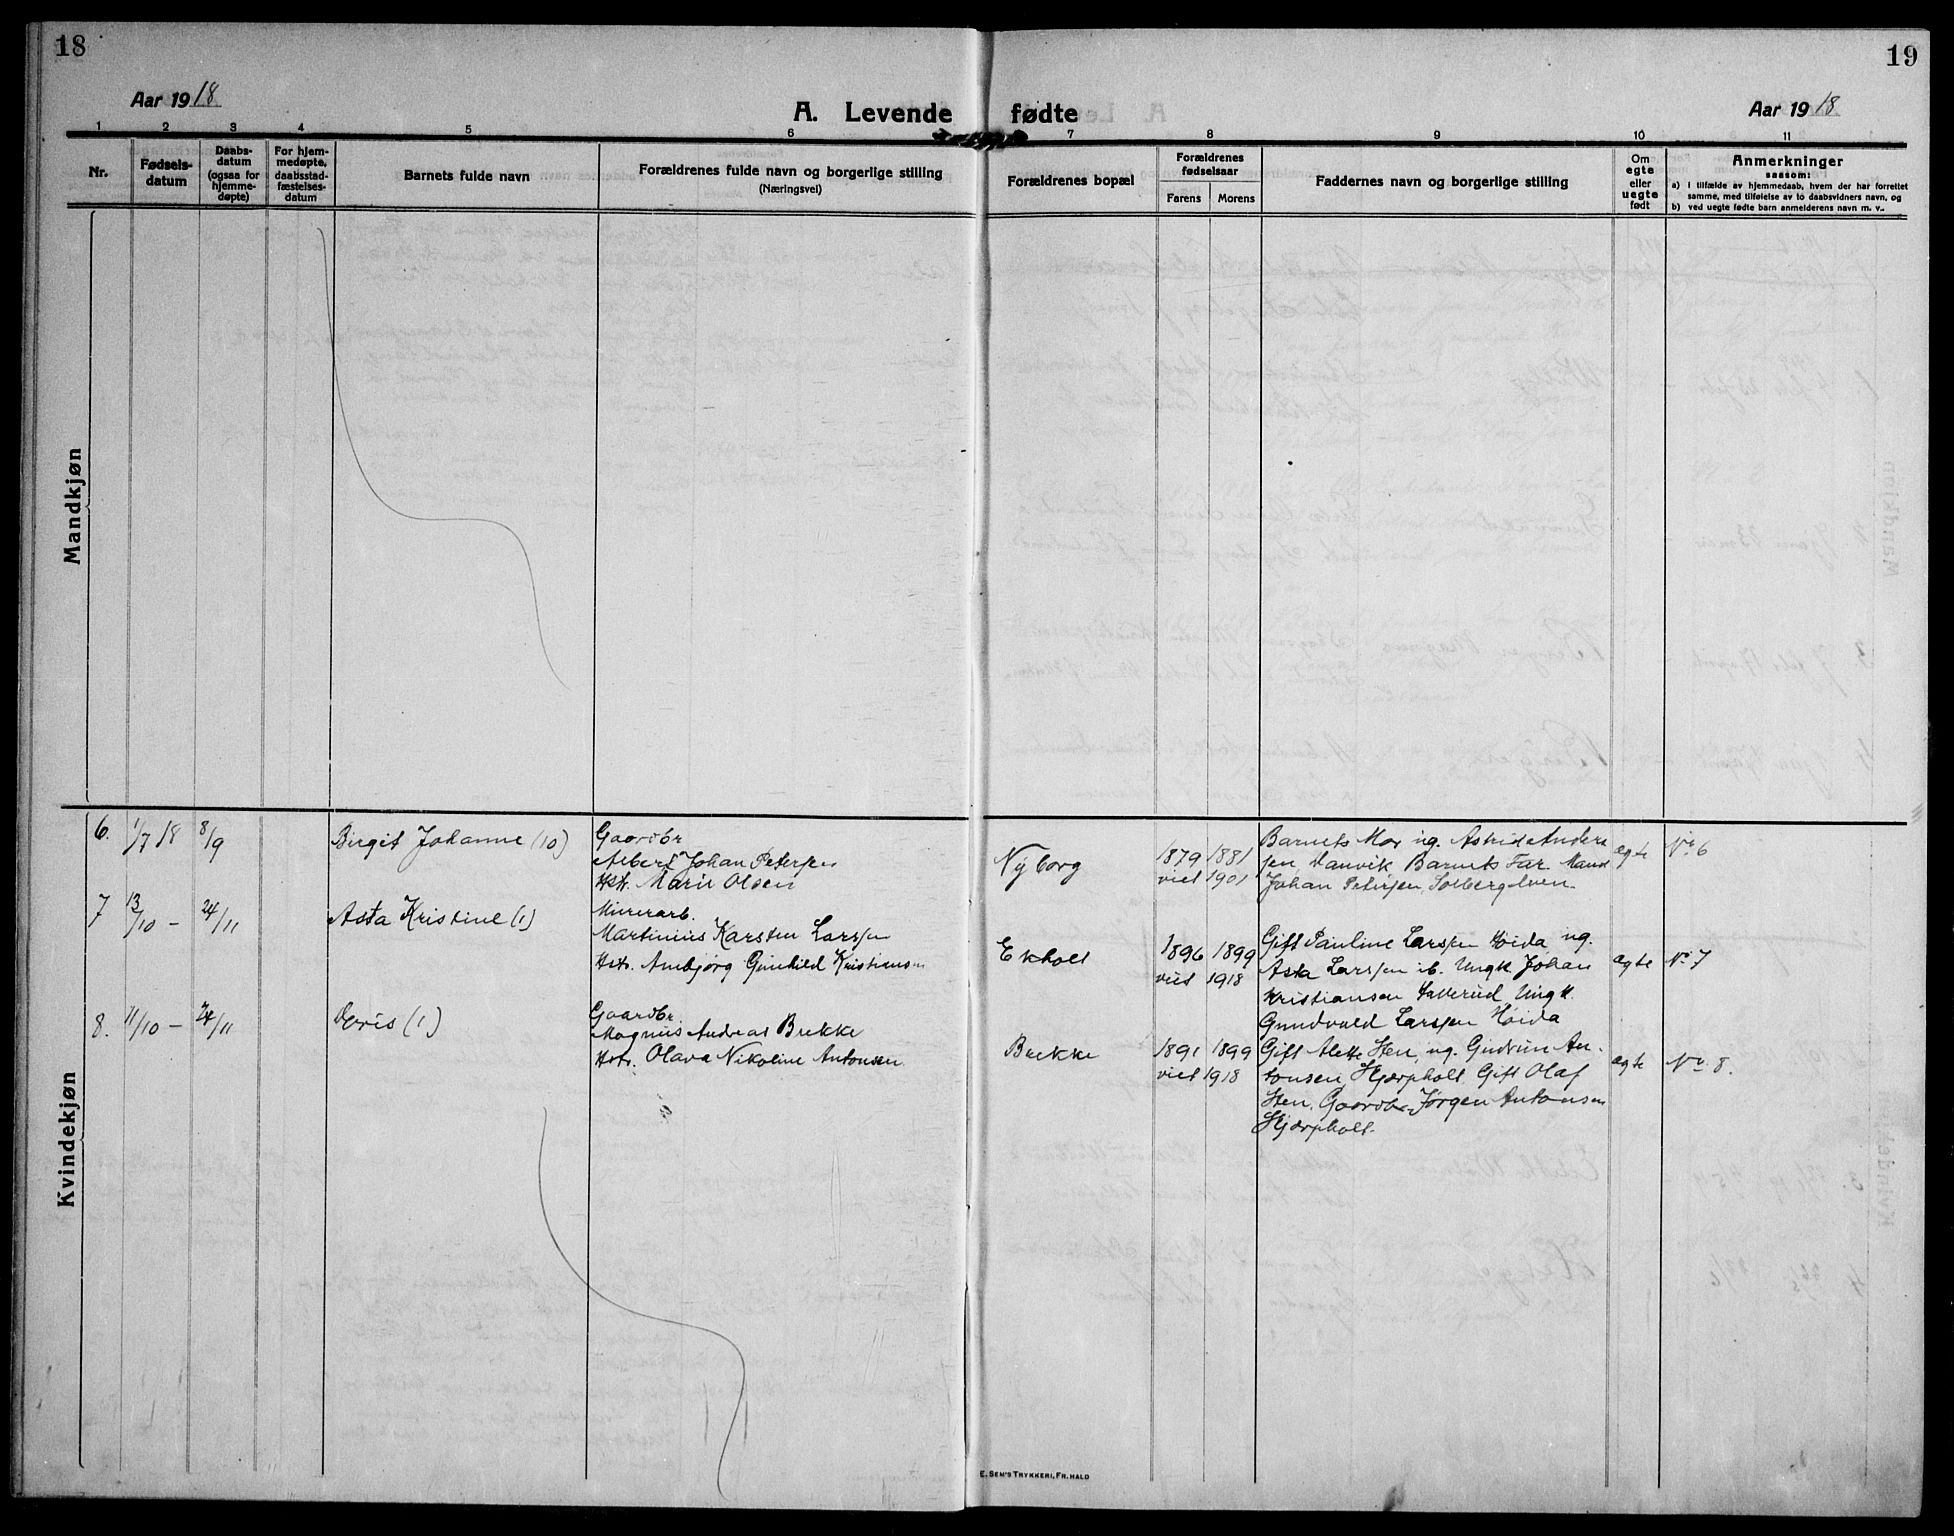 18
19
Aar 1918
A. Levende fødte
Aar 1918
1 2 3 4 5 6 7 8 9 10 11
Nr.
Fødsels-
datum
Daabs-
datum
(ogsaa for
hjemme-
døpte)
For hjem-
medøpte,
daabsstad-
fæstelses-
datum
Barnets fulde navn
Forældrenes fulde navn og borgerlige stilling
(Næringsvei)
Forældrenes bopæl
Forældrenes
fødselsaar
Farens Morens
Faddernes navn og borgerlige stilling
Om
egte
eller
uegte
født
Anmerkninger
saasom:
a) i tilfælde av hjemmedaab, hvem der har forrettet
samme, med tilføielse av to daabsvidners navn, og
b) ved uegte fødte barn anmelderens navn m. v.
Mandkjøn
Kvindekjøn
6. 1/7 18 8/9 Birgit Johanne (10)
Gaardbr
Albert Johan Petersen
Hstr. Marie Olsen
Nyborg
1879 1881
viet 1901
Barnets Mor ug. Astrid Anders
sen Barnets Far.
Johan Petersen, Solbergelven.
egte
Nr. 6
7 13/10 – 24/11 Asta Kristine (1)
Minerarb.
Martinius Karsten Larssen
Hstr. Ambjørg Gunhild Kristiansen
Ekholt
1896 1899
viet 1918
Gift Pauline Larssen Høida ug.
Asta Larssen ib. Ungk. Johan
Kristiansen Ungk.
Gundvald Larssen Høida
egte
No 7
8. 11/10 – 24/11 Doris (1)
Gaardbr.
Magnus Andreas Brekke
Hstr. Olava Nikoline Antonsen
Brekke
1891 1899
viet 1918
Gift Alette Hen, ug. Gudrun An-
tonsen, Hjerpholt. Gift Olaf
Hen. Gaardbr. Jørgen Antonsen
Hjerpholt.
egte
Nr. 8.
E. Sem's Trykkeri, Fr.hald